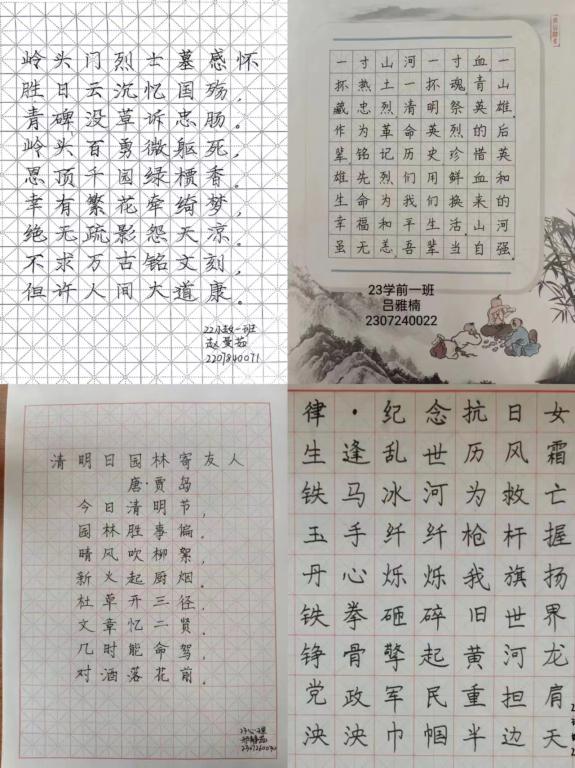 岭头门烈士墓感怀
胜日云沉忆国殇，
青碑没草诉忠肠。
岭头百勇微躯死，
恩顶千园绿槚香。
幸有繁花牵绮梦，
绝无疏影怨天凉。
不求万古铭文刻，
但许人间大道康。
22小教一班
2207840071
一寸山河一寸血，一
抔热土一抔魂，青山
藏忠烈，清明祭英雄。
作为革命英烈的后
辈铭记历史珍惜英
雄先烈们用鲜血和
生命为我们换来的
幸福和平生活，山河
虽无恙，吾辈当自强。
23学前一班
吕雅楠
2307240022
清明日园林寄友人
唐·贾岛
今日清明节，
园林胜事偏。
晴风吹柳絮，
新火起厨烟。
杜草开三径，
文章忆二贤。
几时能命驾，
对酒落花前。
23心理
律·纪念抗日女
生逢乱世历风霜
铁马冰河为救亡
玉手纤纤枪杆握
丹心烁烁我旗扬
铁拳砸碎旧世界
铮骨擎起黄河龙
党政军民重担肩
泱泱巾帼半边天